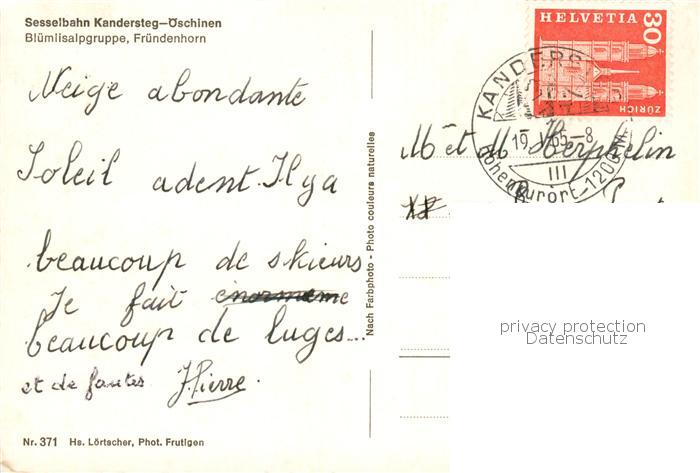 Sesselbahn Kandersteg–Öschinen
Blümlisalpgruppe, Fründenhorn
Neige abondante
Soleil adent. Il y a
beaucoup de skieurs
Je fait enormeme
beaucoup de luges...
et de fautes Pierre.
Nr. 371 Hs. Lörtscher, Phot. Frutigen
Nach Farbphoto - Photo couleurs naturelles
HELVETIA 30
ZÜRICH
KANDERS
19. 65-8
III
Höhenkurort-1200 M.
M et M
privacy protection
Datenschutz